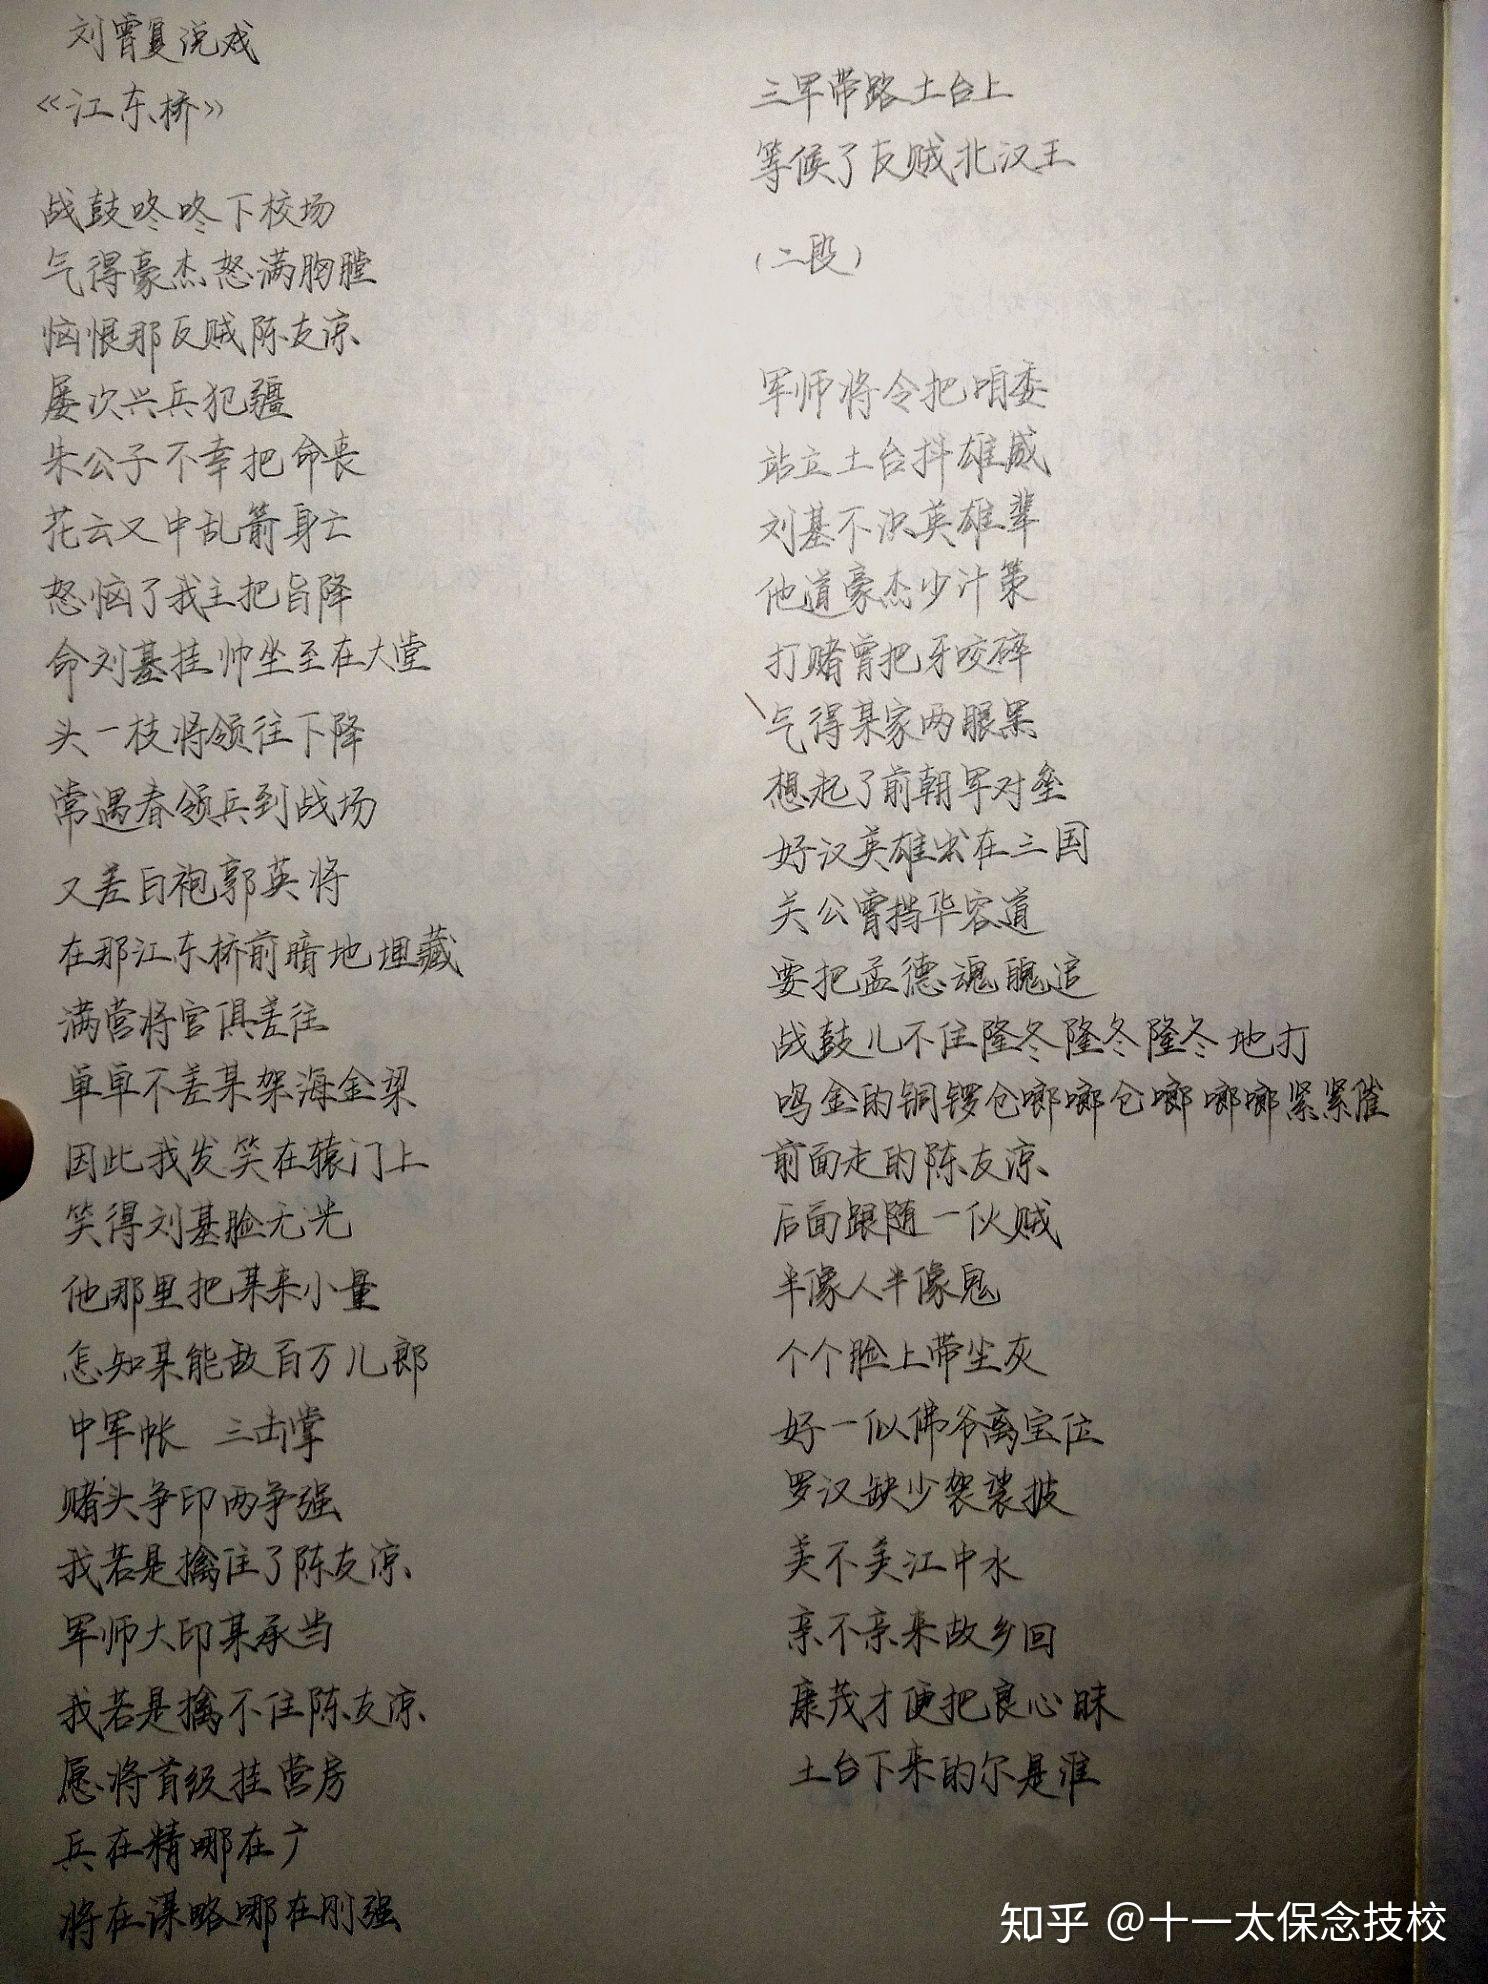 刘曾复说戏
《江东桥》
战鼓咚咚下校场
气得豪杰怒满胸膛
恼恨那反贼陈友凉
屡次兴兵犯疆
朱公子不幸把命丧
花云又中乱箭身亡
怒恼了我主把旨降
命刘基挂帅坐至在大堂
头一枝将领往下降
常遇春领兵到战场
又差白袍郭英将
在那江东桥前暗地埋藏
满营将官俱差往
单单不差某架海金梁
因此我发笑在辕门上
笑得刘基脸无光
他那里把某来小量
怎知某能敌百万儿郎
中军帐 三击掌
赌头争印两争强
我若是擒住了陈友凉
军师大印某承当
我若是擒不住陈友凉
愿将首级挂营房
兵在精哪在广
将在谋略哪在刚强
三军带路土台上
等候了反贼北汉王
（二段）
军师将令把咱委
站立土台抖雄威
刘基不识英雄辈
他道豪杰少计策
打赌曾把牙咬碎
气得某家两眼黑
想起了前朝军对垒
好汉英雄出在三国
关公曾挡华容道
要把孟德魂魄追
战鼓儿不住隆冬隆冬隆冬地打
鸣金的铜锣仓啷啷仓啷啷啷紧紧催
前面走的陈友凉
后面跟随一伙贼
半像人半像鬼
个个脸上带尘灰
好一似佛爷离宝位
罗汉缺少袈裟披
美不美江中水
亲不亲来故乡回
康茂才便把良心昧
土台下来的尔是谁
知乎 @十一太保念技校